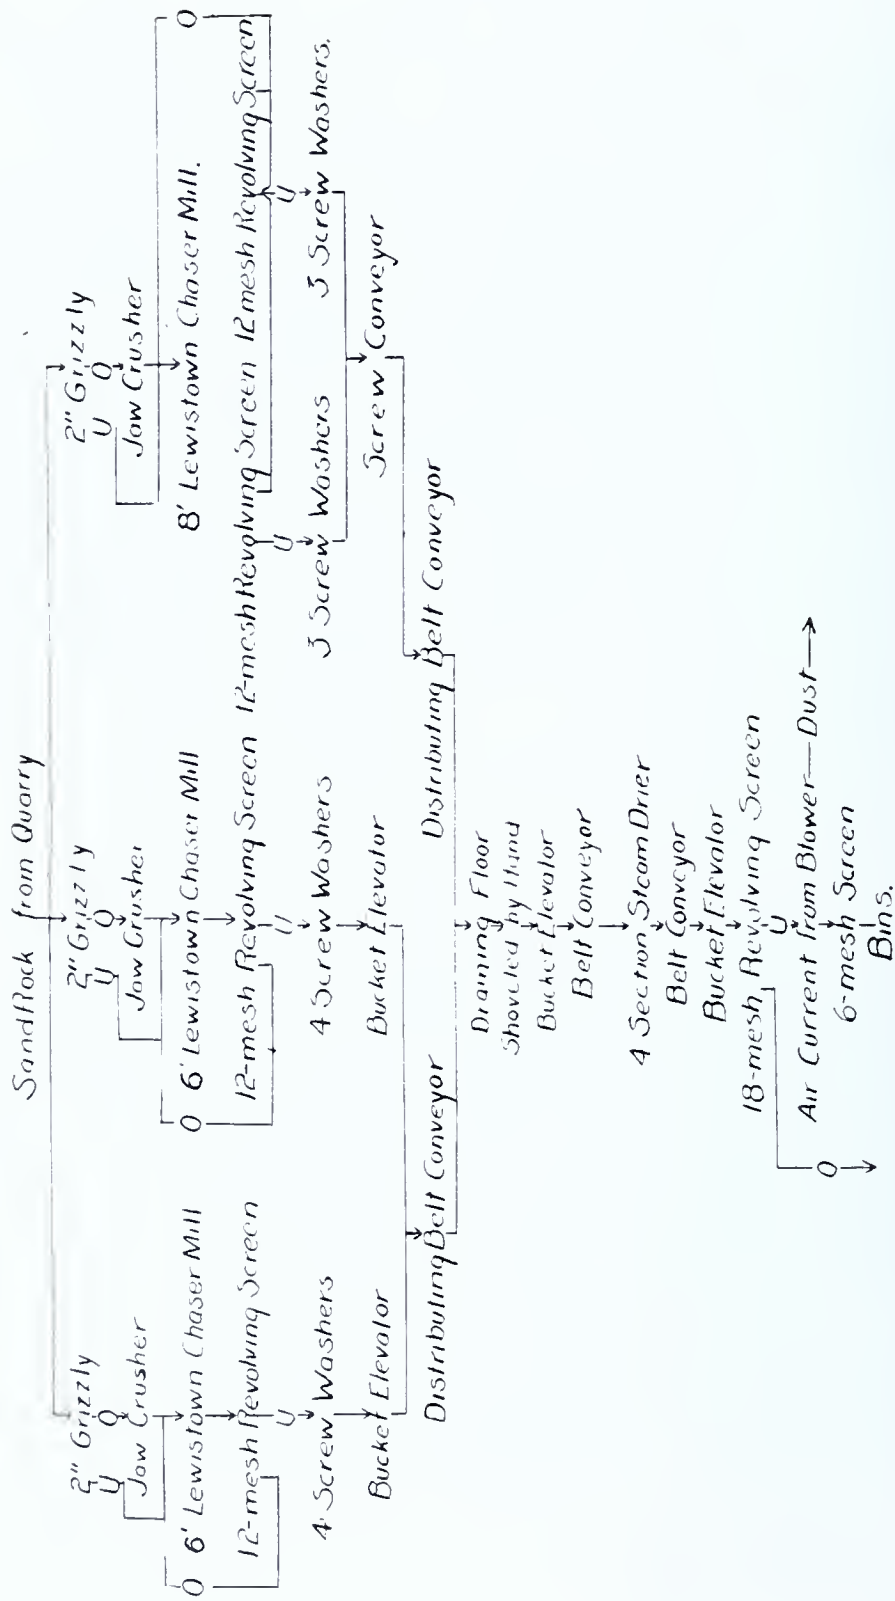 Sand Rock from Quarry
2" Grizzly
U O
Jaw Crusher
O 6' Lewistown Chaser Mill
12-mesh Revolving Screen
U
4 Screw Washers
Bucket Elevator
2" Grizzly
U O
Jaw Crusher
O 6' Lewistown Chaser Mill
12-mesh Revolving Screen
U
4 Screw Washers
Bucket Elevator
Distributing Belt Conveyor
2" Grizzly
U O
Jaw Crusher
8' Lewistown Chaser Mill.
O
12-mesh Revolving Screen
12 mesh Revolving Screen
U
U
3 Screw Washers
3 Screw Washers.
Screw Conveyor
Distributing Belt Conveyor
Draining Floor
Shoveled by Hand
Bucket Elevator
Belt Conveyor
4 Section Steam Drier
Belt Conveyor
Bucket Elevator
18-mesh Revolving Screen
O
U
Air Current from Blower—Dust
6-mesh Screen
Bins.